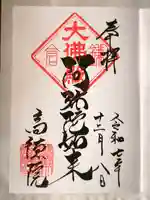 奉拝
令和七年
十二月八日
大佛殿
鎌倉
阿弥陀如来
高徳院